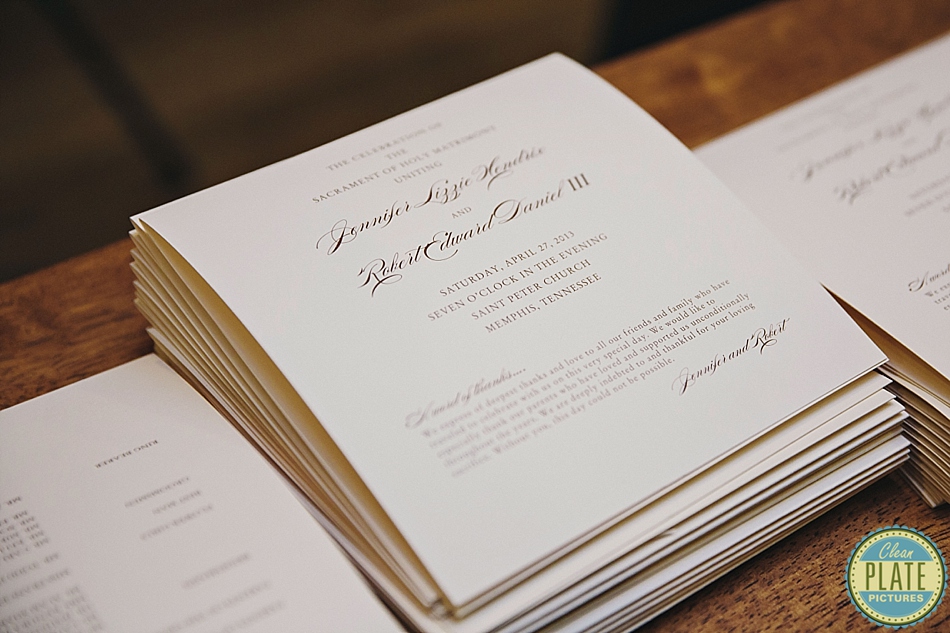 THE CELEBRATION OF
THE
SACRAMENT OF HOLY MATRIMONY
UNITING
Jennifer Lizzie Hendrix
AND
Robert Edward Daniel III
SATURDAY, APRIL 27, 2013
SEVEN O'CLOCK IN THE EVENING
SAINT PETER CHURCH
MEMPHIS, TENNESSEE
A word of thanks....
We express of deepest thanks and love to all our friends and family who have
traveled to celebrate with us on this very special day. We would like to
especially thank our parents who have loved and supported us unconditionally
throughout the years. We are deeply indebted to and thankful for your loving
sacrifice. Without you, this day could not be possible.
Jennifer and Robert
RING BEARER
GROOMSMEN
BEST MAN
Clean
PLATE
PICTURES